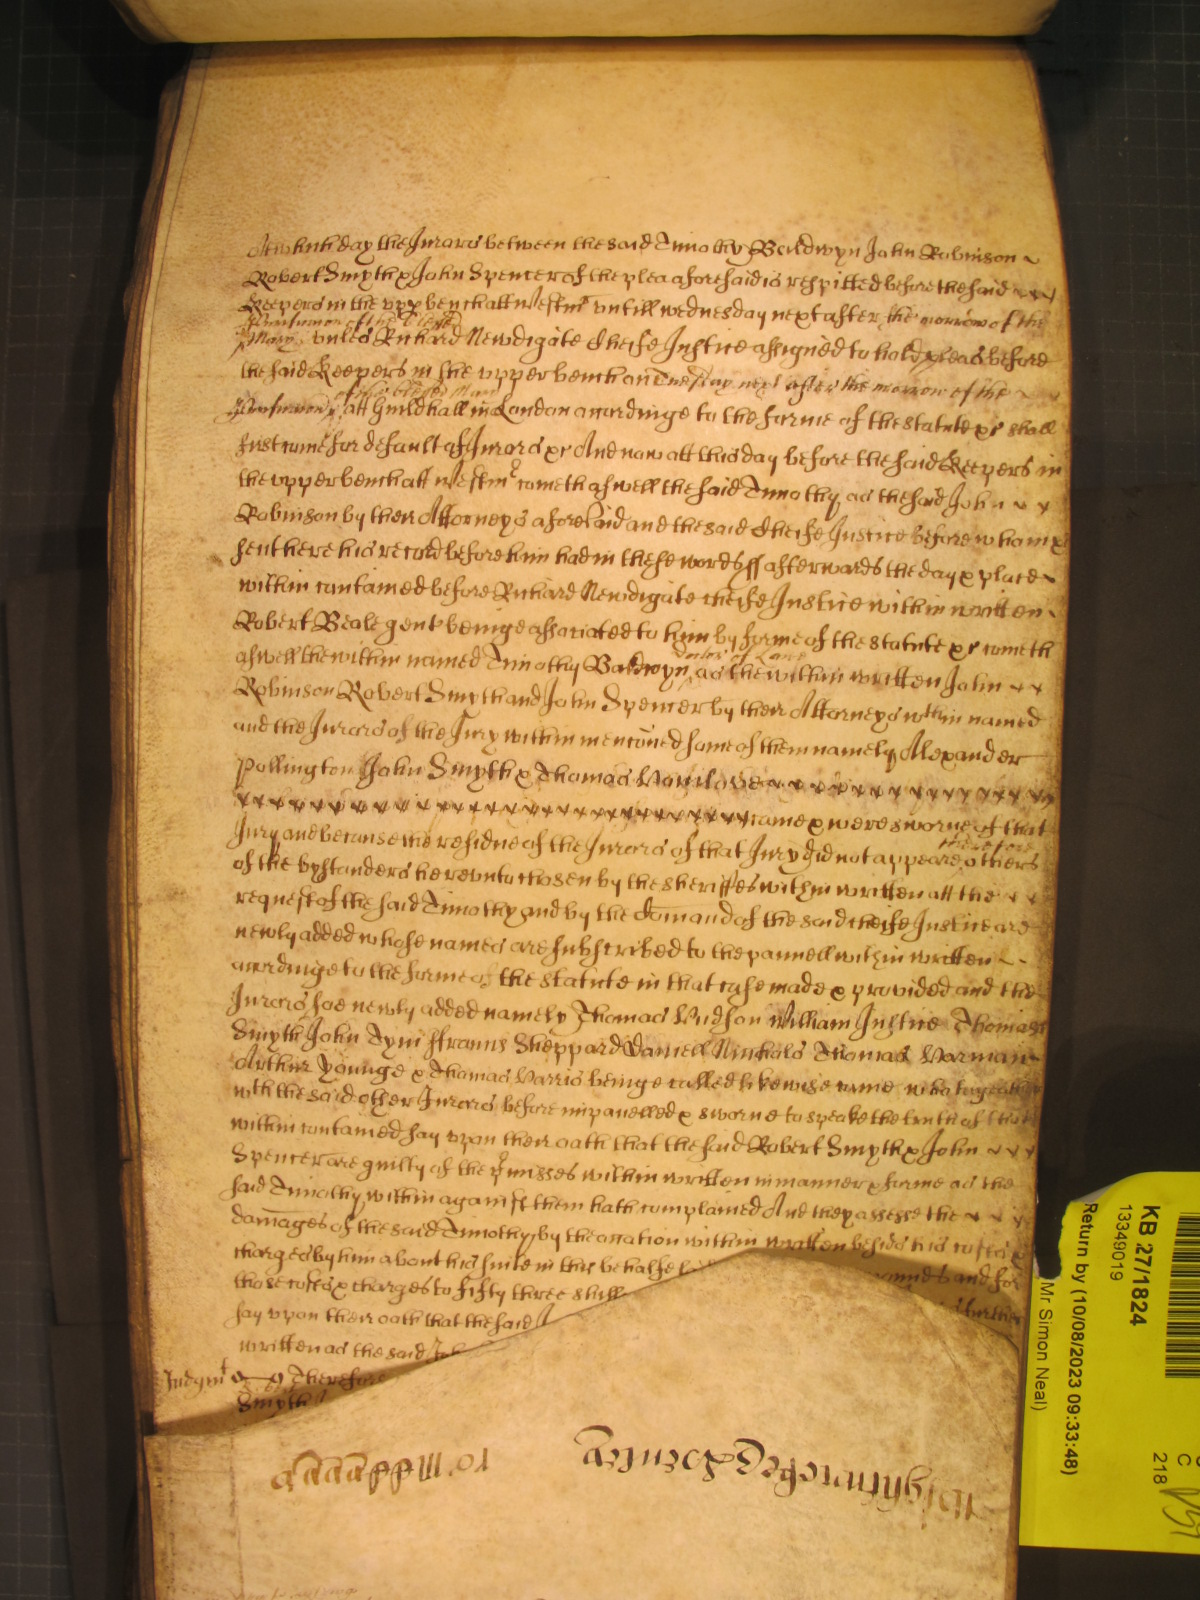 At which day the Jurors between the said Timothy Baldwyn John Robinson
Robert Smyth x John Spencer of the plea aforesaid is respitted before the said
Keepers in the upp bench att Westm untill wednesday next after the morrow of the
Purificacon of the blessed
Mary unles Richard Newdigate Cheife Justice assigned to hold pleas before
the said Keepers in the upper bench on Tuesday next after the morrow of the
of the blessed Mary
att Guildhall in London accordinge to the forme of the statute xc shall
first come for default of Jurors xc And now att this day before the said Keepers in
the upper bench att Westm cometh aswell the said Timothy as the said John
Robinson by their Attorneys aforesaid and the said Cheife Justice before whom xc
sent here his record before him had in these words ss afterwards the day x place
within contained before Richard Newdigate cheife Justice within written
Robert Beale gent beinge associated to him by forme of the statute xc cometh
Doctor of Lawe
aswell the within named Timothy Baldwyn as the within written John
Robinson Robert Smyth and John Spencer by their Attorneys wthin named
and the Jurors of the Jury within mencōned some of them namely Alexander
Pollington John Smyth x Thomas
came x were sworne of that
Jury and because the residue of the Jurors of that Jury did not appeare therefore others
of the bystanders hereunto chosen by the sheriffes within written att the
request of the said Timothy and by the cōmand of the said cheife Justice are
newly added whose names are subscribed to the pannell within written
accordinge to the forme of the statute in that case made x provided and the
Jurors soe newly added namely Thomas Hudson William Justice Thomas
Smyth John Sheppard Daniell Nichols Thomas Harman
Arthur Younge x Thomas Harris beinge called likewise came who together
wth the said other Jurors before impanelled x sworne to speake the truth of the
within contained say upon their oath that the said Robert Smyth x John
Spencer are guilty of the pmisses within written in manner x forme as the
said Timothy within against them hath complained And they assesse the
damages of the said Timothy by the occation within written besides his costs x
charges by him about his suite in this behalfe and for
those costs x charges to fifty three shill further
say upon their oath that the said J
written as the said Joh
Judgmt Therefore
Smyth
Wightwicke